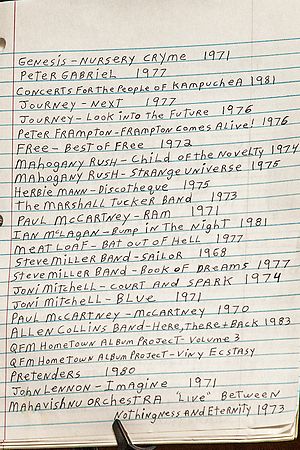 Genesis - Nursery Cryme 1971
Peter Gabriel 1977
Concerts For the People of Kampuchea 1981
Journey - Next 1977
Journey - Look into the Future 1976
Peter Frampton - Frampton Comes Alive! 1976
Free - Best of Free 1972
Mahogany Rush - Child of the Novelty 1974
Mahogany Rush - Strange Universe 1975
Herbie Mann - Discotheque 1975
The Marshall Tucker Band 1973
Paul McCartney - Ram 1971
Ian McLagan - Bump in the Night 1981
Meat Loaf - Bat out of Hell 1977
Steve Miller Band - Sailor 1968
Steve Miller Band - Book of Dreams 1977
Joni Mitchell - Court and Spark 1974
Joni Mitchell - Blue 1971
Paul McCartney - McCartney 1970
Allen Collins Band - Here, There + Back 1983
QFM Hometown Album Project - Volume 3
QFM Hometown Album Project - Viny Ecstasy
Pretenders 1980
John Lennon - Imagine 1971
Mahavishnu Orchestra "Live" Between
Nothingness and Eternity 1973